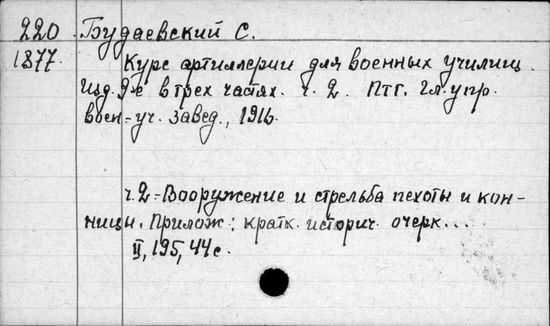 220 Будаевский С.
1877. Курс артиллерии для военных училищ.
Изд. 9-е в трех частях. ч. 2. Птг. Гл. упр.
воен-уч. завед., 1916.
ч. 2-Вооружение и стрельба пехоты и кон-
ницы. Прилож: кратк. историч. очерк...
II, 195, 44 с.